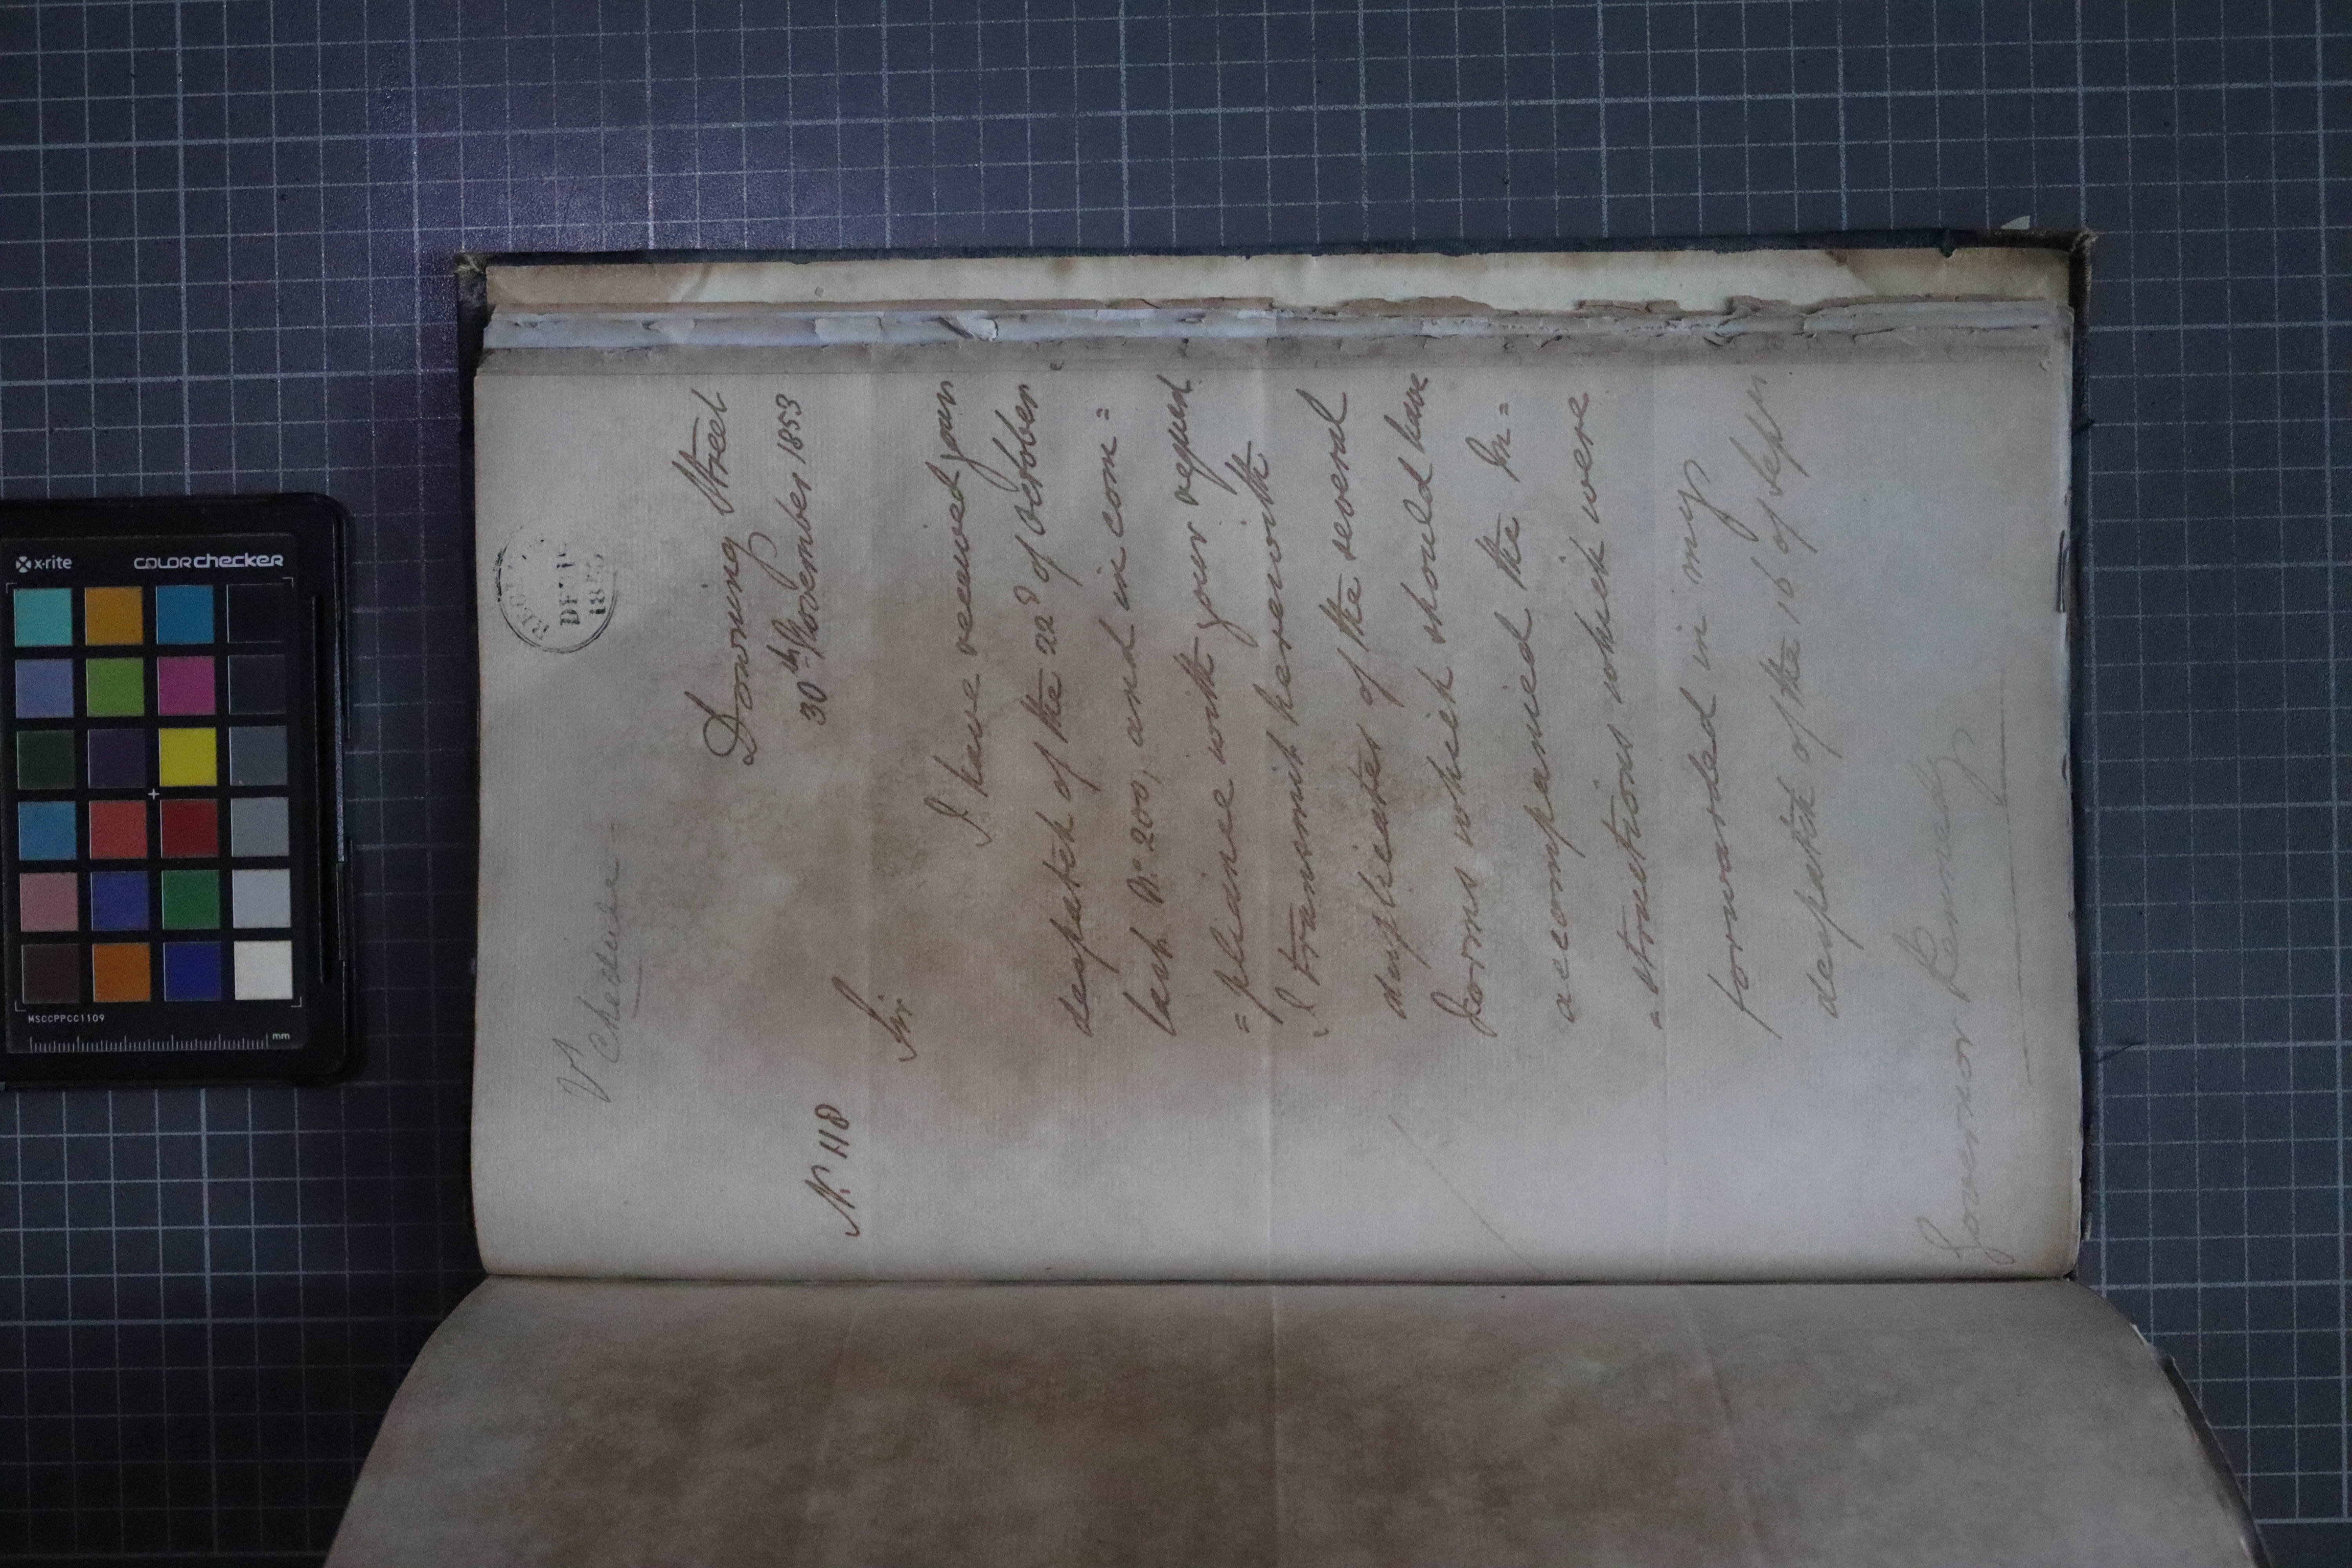 Schedule
Downing Street
30th November 1853
No. 118
Sir
I have received your
despatch of the 22d of October
last No. 200, and in com=
=pliance with your request
I transmit herewith
duplicates of the several
Forms which should have
accompanied the In=
=structions which were
forwarded in my
despatch of the 16 of Septr
Governor Kennedy
x-rite
colorchecker
MSCCPPCC1109
mm